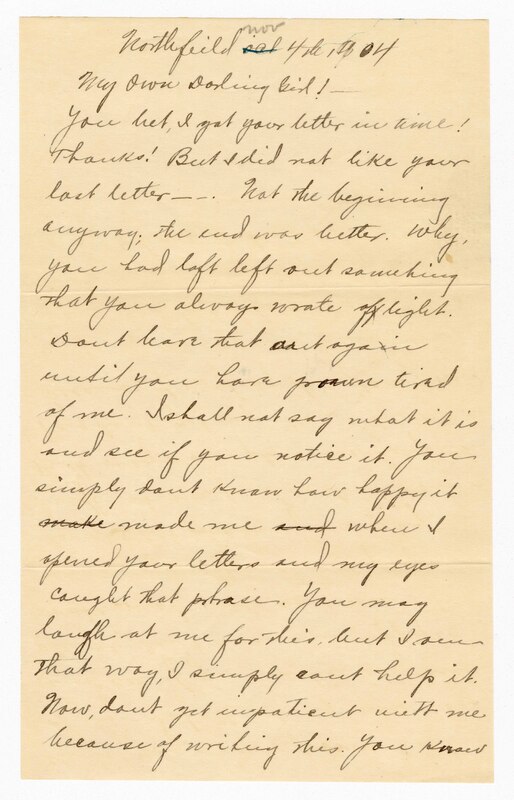 nov
Northfield Oct 4th 1904
My Own Darling Girl! —
You bet, I got your letter in time!
Thanks! But I did not like your
last letter — –. Not the beginning
anyway; the end was better. Why,
you had loft left out something
that you always wrote of light.
Dont leave that out again
until you have grown tired
of me. I shall not say what it is
and see if you notice it. You
simply dont know how happy it
make made me and when I
opened your letters and my eyes
caught that phrase. You may
laugh at me for this, but I am
that way, I simply cant help it.
Now, dont get impatient with me
because of writing this. You know